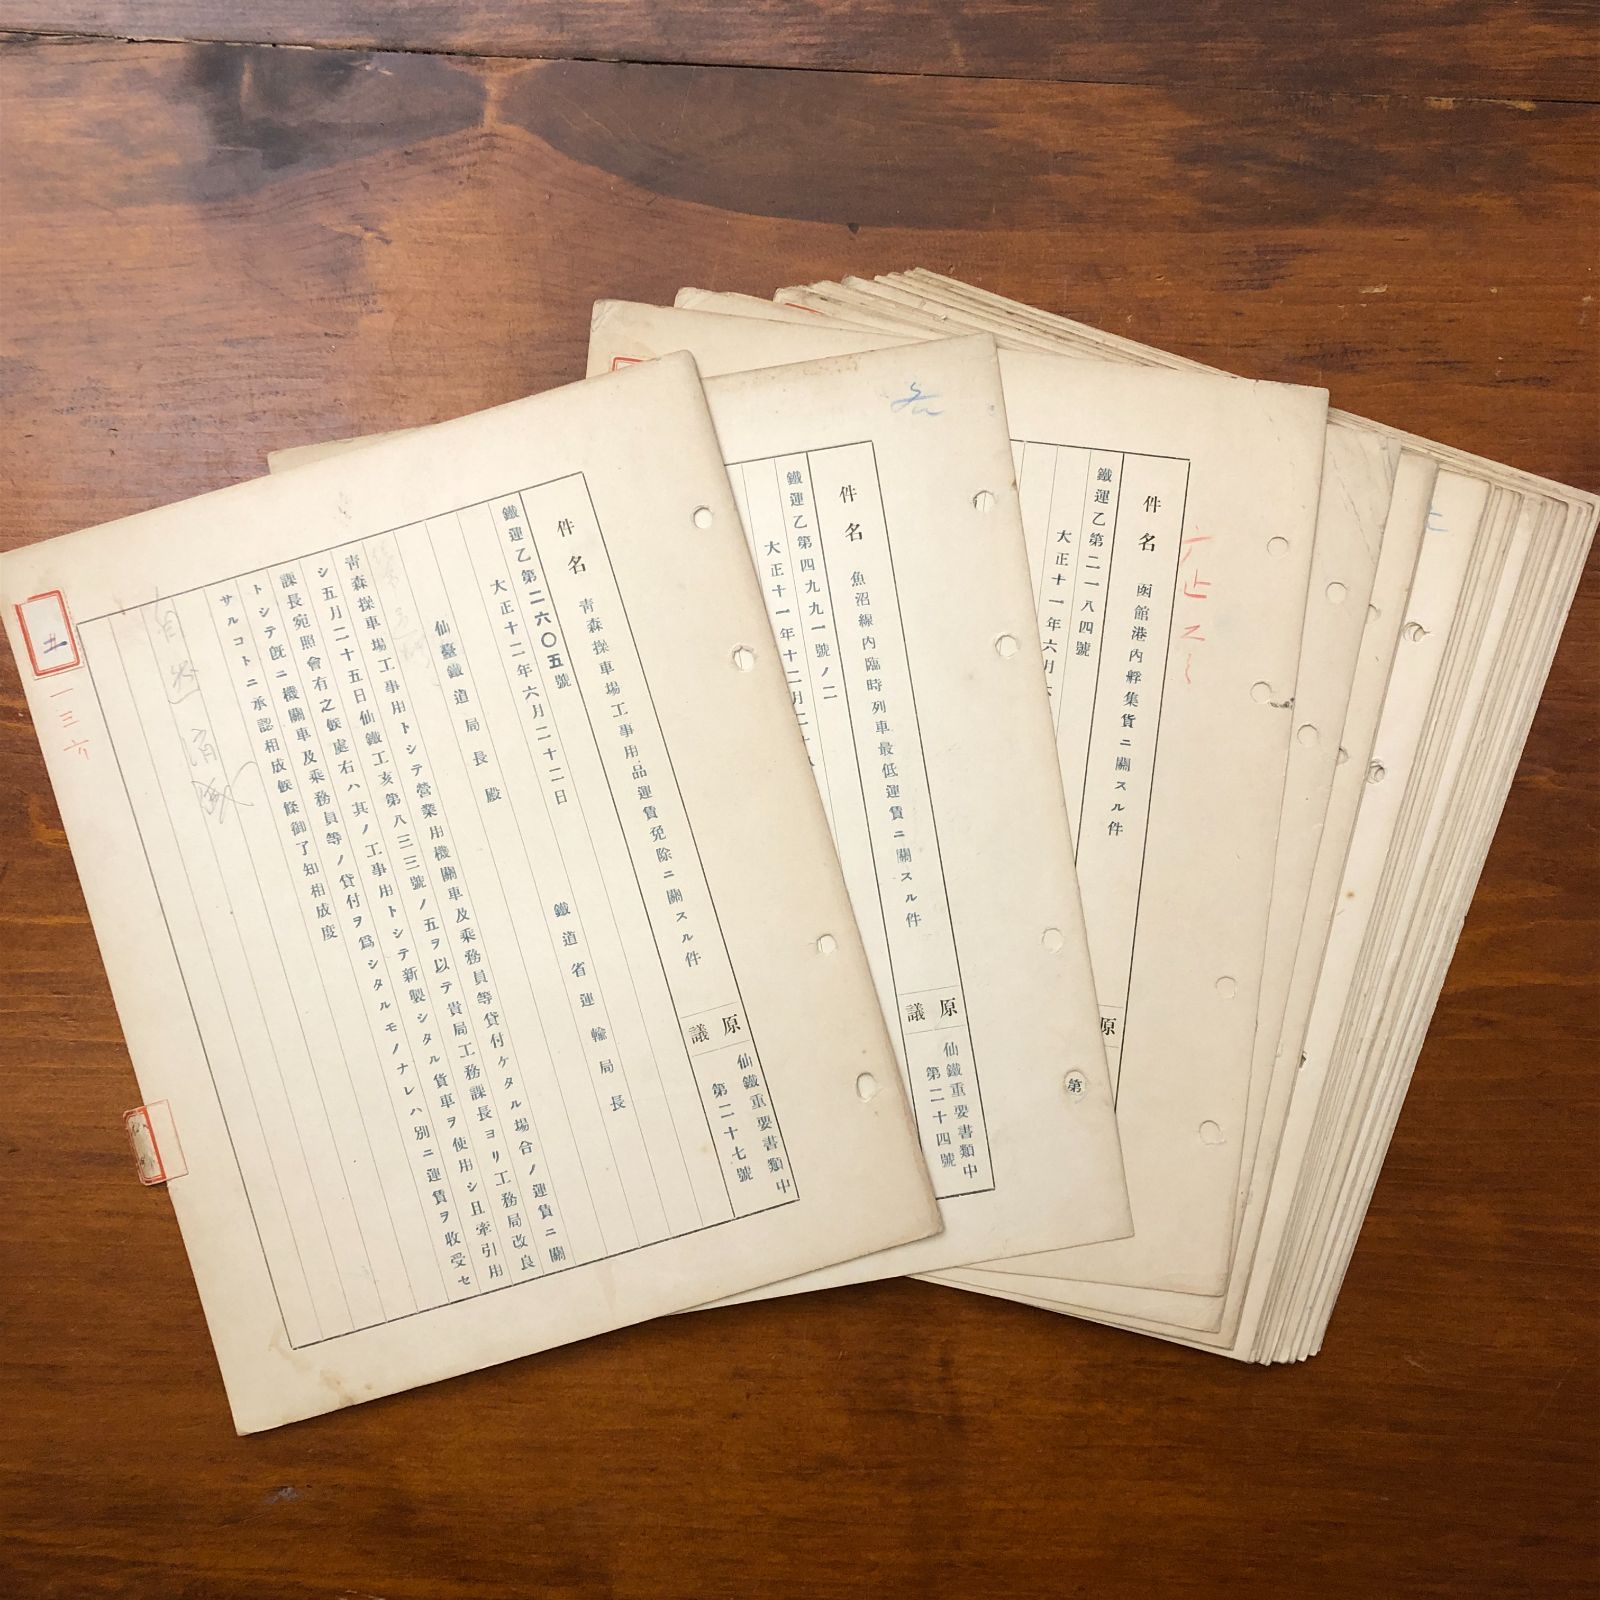 件名 青森操車場工事用品運賃免除ニ關スル件
原議
仙鐵重要書類中
第二十七號
鐵運乙第二六〇五號
大正十二年六月二十二日
鐵道省運輸局長
仙臺鐵道局長殿
青森操車場工事用トシテ營業用機關車及乘務員等貸付ケタル場合ノ運賃ニ關
シ五月二十五日仙鐵工亥第八三三號ノ五ヲ以テ貴局工務課長ヨリ工務局改良
課長宛照會有之候處右ハ其ノ工事用トシテ新製シタル貨車ヲ使用シ且牽引用
トシテ旣ニ機關車及乘務員等ノ貸付ヲ爲シタルモノナレハ別ニ運賃ヲ收受セ
サルコトニ承認相成候條御了知相成度
一三六
件名 魚沼線內臨時列車最低運賃ニ關スル件
原議
仙鐵重要書類中
第二十四號
鐵運乙第四九九一號ノ二
大正十一年十二月二十八
件名 函館港內艀集貨ニ關スル件
原
第
鐵運乙第二一八四號
大正十一年六月六